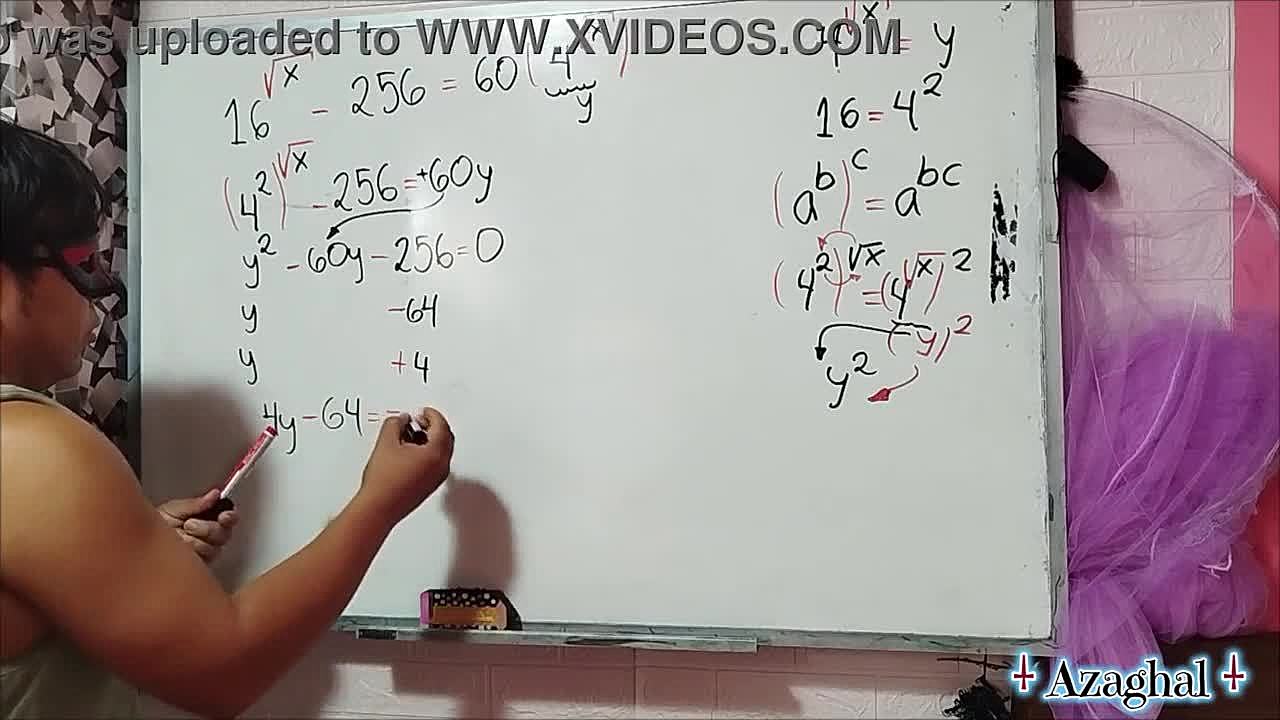 o was uploaded to WWW.XVIDEOS.COM
16^√x - 256 = 60(4^√x)
y
(4²)^√x - 256 = +60y
y² - 60y - 256 = 0
y -64
y +4
4y - 64 =
4^√x = y
16 = 4²
(a^b)^c = a^bc
(4²)^√x = (4^√x)²
(y)²
y²
Azaghal